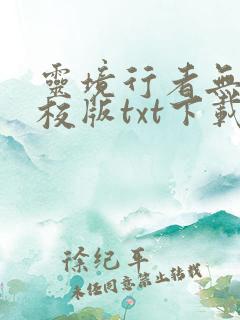 靈境行者無
校版txt下載
徐紀平
未经同意禁止转载